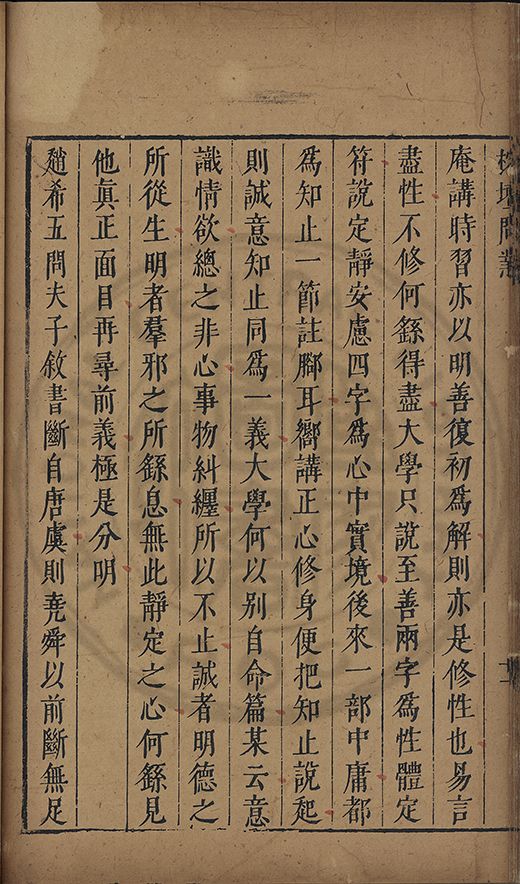 榕壇問業
庵講時習亦以明善復初爲解則亦是修性也易言
盡性不修何繇得盡大學只說至善兩字爲性體定
符說定靜安慮四字爲心中實境後來一部中庸都
爲知止一節註腳耳嚮講正心修身便把知止說起
則誠意知止同爲一義大學何以別自命篇某云意
識情欲總之非心事物糾纏所以不止誠者明德之
所從生明者羣邪之所繇息無此靜定之心何繇見
他眞正面目再尋前義極是分明
趙希五問夫子敘書斷自唐虞則堯舜以前斷無足